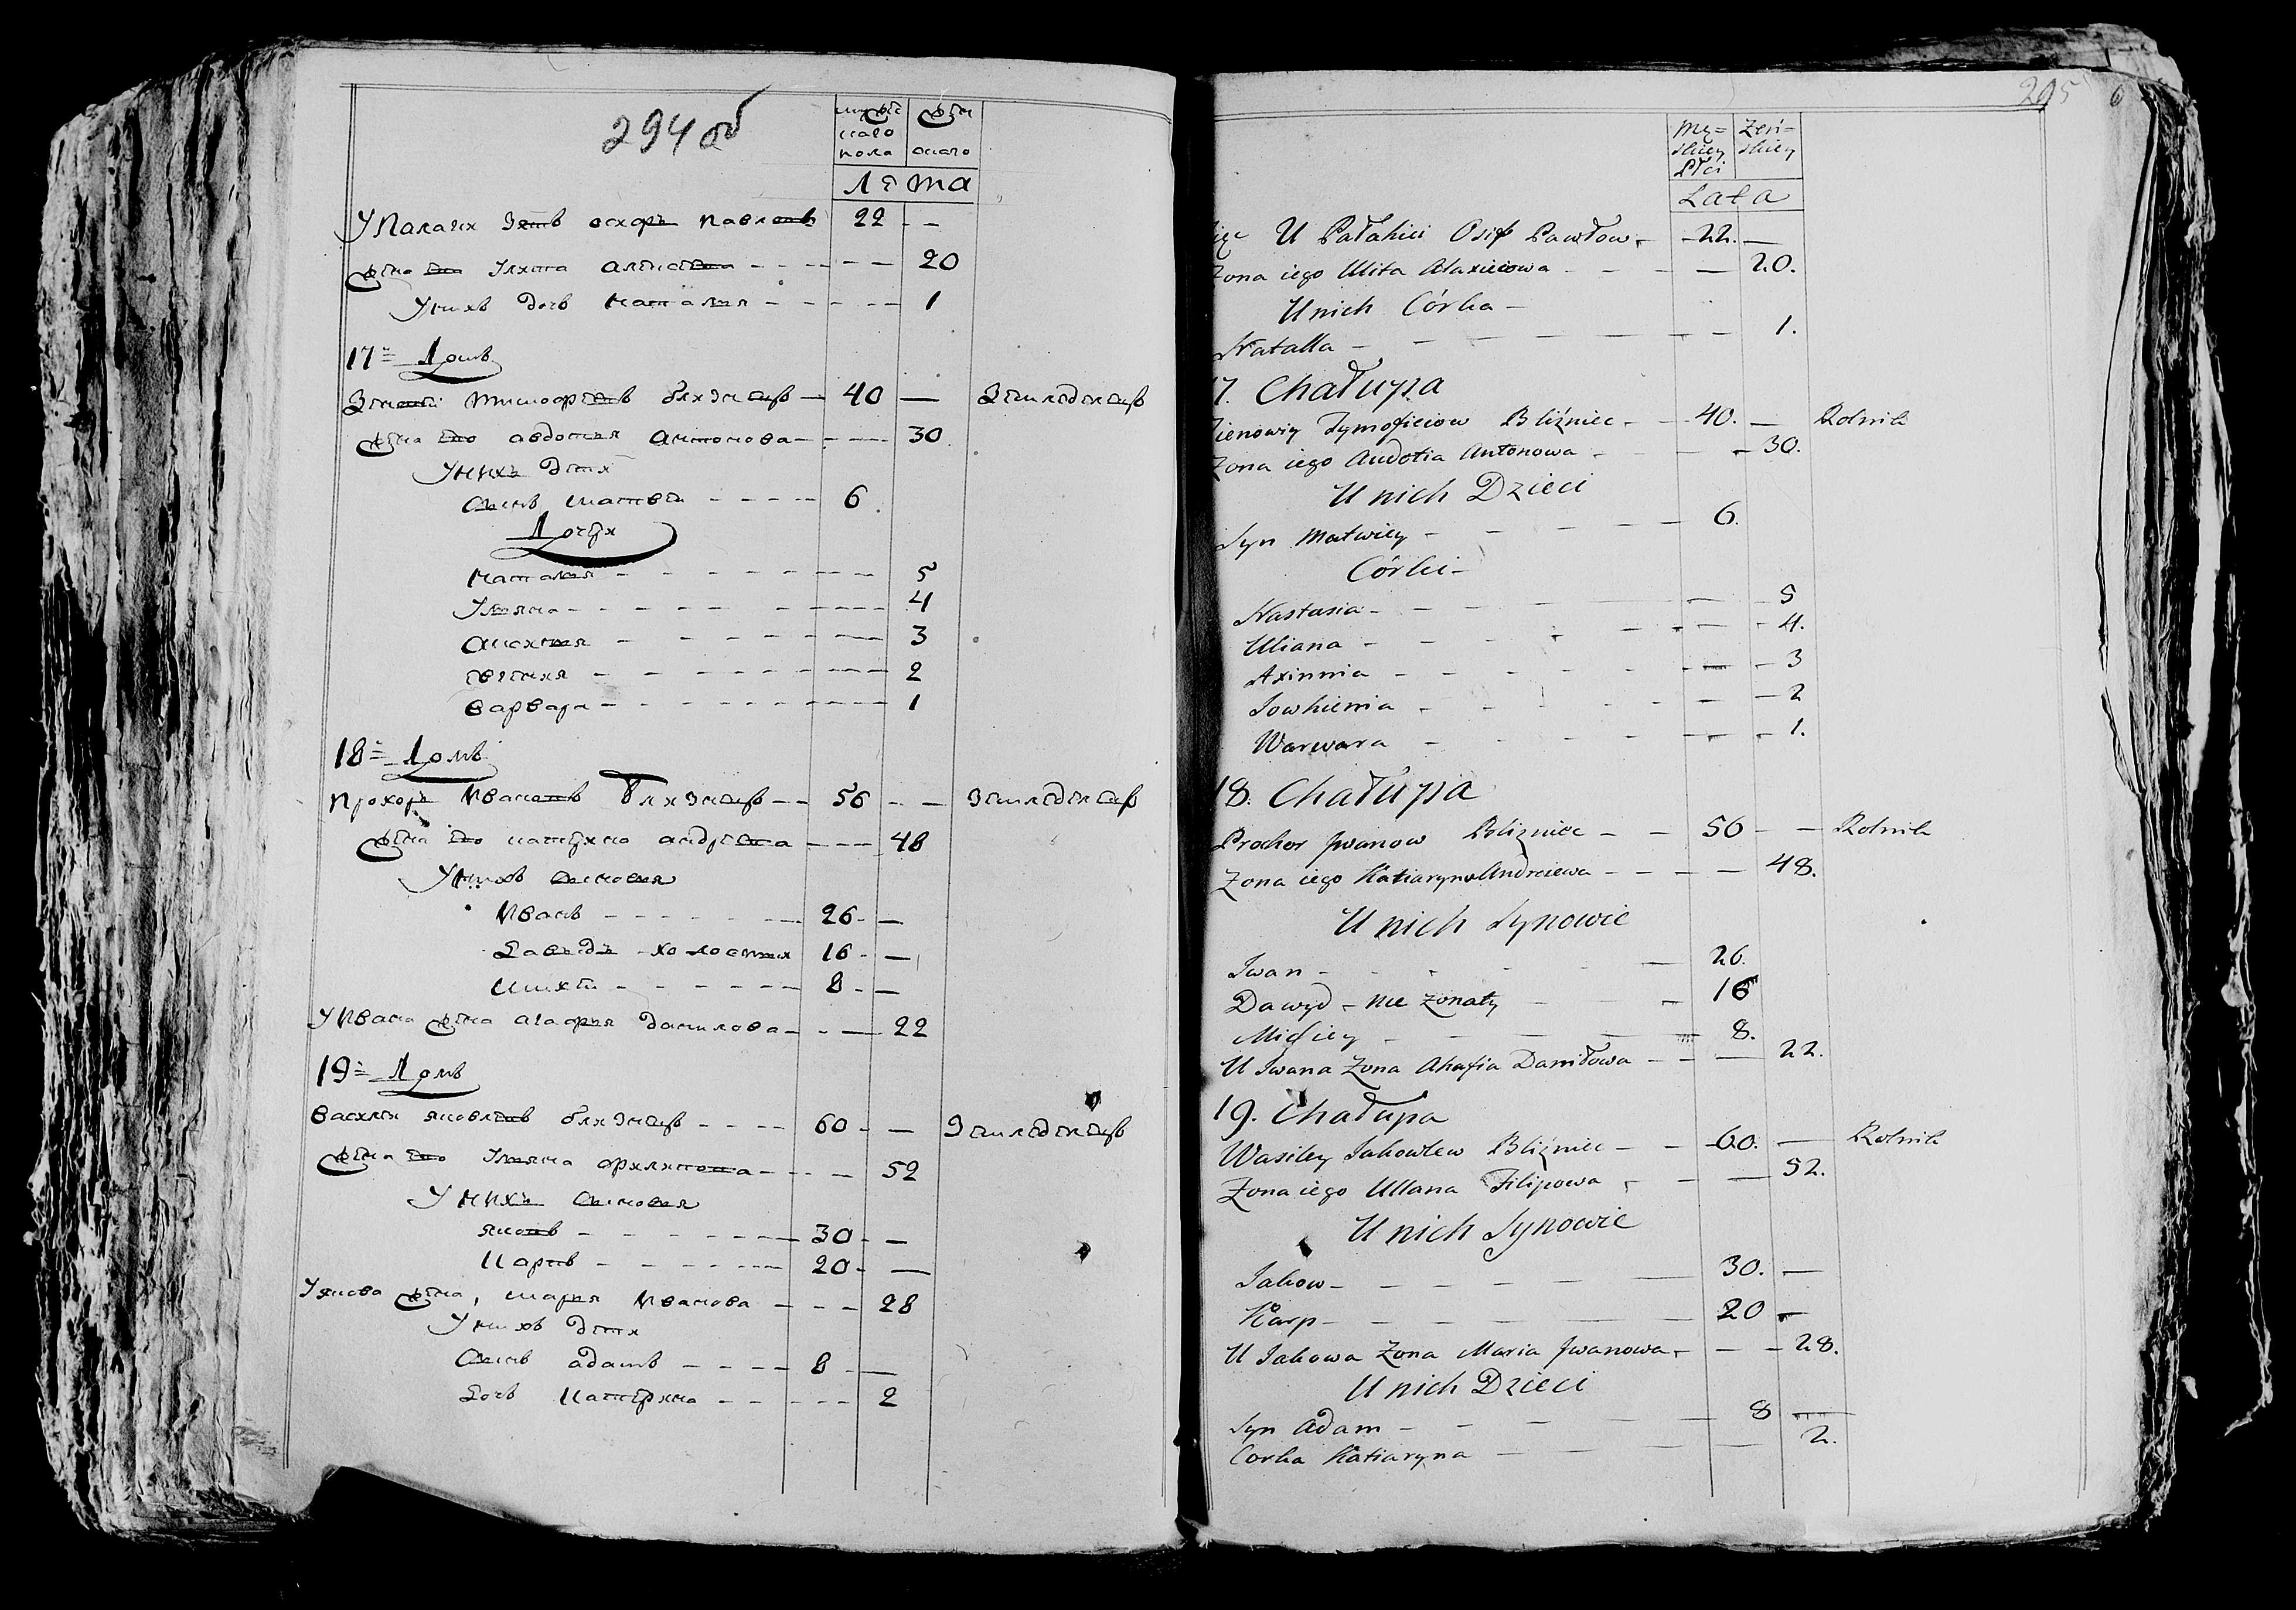 294 об
мужес
каго
пола
жен
скаго
Лета
У Палаги Зять осипъ павловъ 22 - -
жена его Улита алексеева - - - 20
У нихъ дочь наталия - - - 1
17 = Домъ
Зеновей тимофеевъ близнецъ - 40 — Земледелецъ
жена его авдотья антонова - - - 30
У нихъ дети
Сынъ матвеи - - - 6
Дочери
наталия - - - 5
Ульяна - - - 4
аксиния - - - 3
евгения - - - 2
варвара - - - 1
18 = Домъ
прохоръ Ивановъ близнецъ - - 56 - — Земледелецъ
жена его катерина андреева - - - 48
У нихъ Сыновья
Иванъ - - - 26 - —
Давыдъ - холостыи 16 - —
михеи - - - 8 - —
У Ивана жена агафия данилова - - — 22
19 = Домъ
василеи яковлевъ близнецъ - - - 60 - — Земледелецъ
жена его Ульяна филипова - - — 52
У нихъ Сыновья
яковъ - - - 30 - —
карпъ - - - 20 - —
У якова жена, мария Иванова - - - 28
У нихъ дети
Сынъ адамъ - - - 8 - —
Дочь катерина - - - 2
295
6
Mę=
skiey
Płci
Żeń=
skiey
Lata
U Pałahii Osip Pawłow - 22. —
Zona iego Ulita Alaxieiowa - - — 20.
U nich Córka -
Natalla - - - 1.
17. Chałupa
Zienowiy Tymofieiow Bliźniec - - 40. — Rolnik
Zona iego Audotia Antonowa - - 30.
U nich Dzieci
Syn Matwiey - - - 6.
Córki -
Nastasia - - - 5
Uliana - - - 4.
Axinnia - - - 3
Jowhienia - - - 2
Warwara - - - 1.
18. Chałupa
Prochor Jwanow Blizniec - - 56 - — Rolnik
Zona iego Katiaryna Andreiewa - - - 48.
U nich Synowie
Iwan - - - 26.
Dawyd - nie żonaty - - 16
Michiey - - - 8.
U Iwana Zona Ahafia Daniłowa - - — 22.
19. Chałupa
Wasiley Jakowlew Bliźniec - - 60. — Rolnik
Zona iego Ullana Filipowa - - — 52.
U nich Synowie
Jakow - - - 30. —
Karp - - - 20 —
U Jakowa Zona Maria Jwanowa - - - 28.
U nich Dzieci
Syn Adam - - - 8 —
Corka Katiaryna - - - 2.